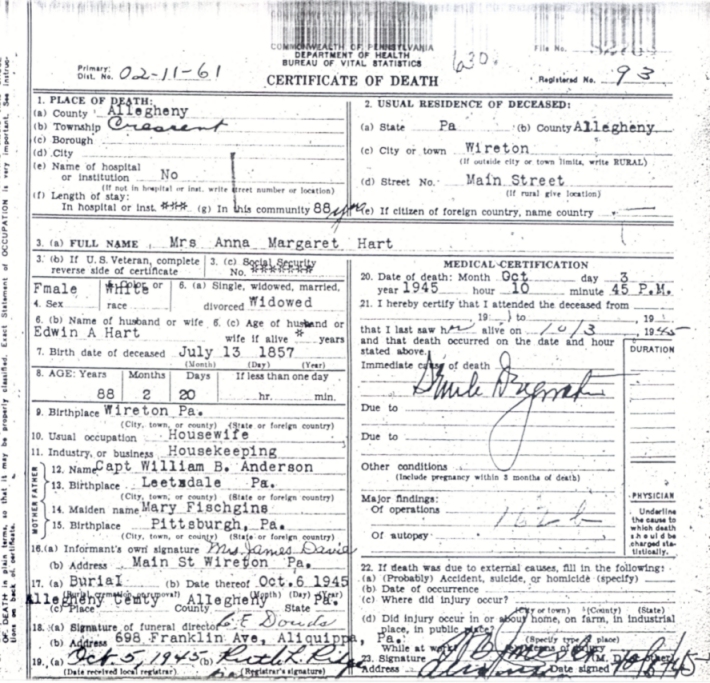 COMMONWEALTH OF PENNSYLVANIA
DEPARTMENT OF HEALTH
BUREAU OF VITAL STATISTICS
File No.
630.
Primary:
Dist. No. 02-11-61
CERTIFICATE OF DEATH
Registered No. 93
1. PLACE OF DEATH:
(a) County Allegheny
(b) Township Crescent
(c) Borough
(d) City
(e) Name of hospital
or institution No
(If not in hospital or inst. write street number or location)
(f) Length of stay:
In hospital or inst. *** (g) In this community 88 yrs
2. USUAL RESIDENCE OF DECEASED:
(a) State Pa (b) County Allegheny
(c) City or town Wireton
(If outside city or town limits, write RURAL)
(d) Street No. Main Street
(If rural give location)
(e) If citizen of foreign country, name country -
3. (a) FULL NAME Mrs Anna Margaret Hart
3. (b) If U.S. Veteran, complete
reverse side of certificate
3. (c) Social Security
No. *******
Fmale White
4. Sex
5. Color or
race
6. (a) Single, widowed, married,
divorced Widowed
6. (b) Name of husband or wife
Edwin A Hart
6. (c) Age of husband or
wife if alive * years
7. Birth date of deceased July 13 1857
(Month) (Day) (Year)
8. AGE: Years Months Days If less than one day
88 2 20 hr. min.
9. Birthplace Wireton Pa.
(City, town, or county) (State or foreign country)
10. Usual occupation Housewife
11. Industry, or business Housekeeping
FATHER
12. Name Capt William B. Anderson
13. Birthplace Leetsdale Pa.
(City, town, or county) (State or foreign country)
MOTHER
14. Maiden name Mary Fischgins
15. Birthplace Pittsburgh, Pa.
(City, town, or county) (State or foreign country)
16. (a) Informant's own signature Mrs. James Davie
(b) Address Main St Wireton Pa.
17. (a) Burial (b) Date thereof Oct. 6 1945
(Burial, cremation or removal) (Month) (Day) (Year)
Allegheny Cemty Allegheny Pa.
(c) Place County State
18. (a) Signature of funeral director C. E. Douds
(b) Address 698 Franklin Ave, Aliquippa, Pa.
19. (a) Oct. 5, 1945 (b) Ruth L.
(Date received local registrar) (Registrar's signature)
MEDICAL CERTIFICATION
20. Date of death: Month Oct day 3
year 1945 hour 10 minute 45 P.M.
21. I hereby certify that I attended the deceased from
, 19 to , 19
that I last saw her alive on 10/3, 1945
and that death occurred on the date and hour
stated above.
DURATION
Immediate cause of death
Due to
Due to
Other conditions
(Include pregnancy within 3 months of death)
Major findings:
Of operations
162b
Of autopsy
PHYSICIAN
Underline
the cause to
which death
should be
charged sta-
tistically.
22. If death was due to external causes, fill in the following:
(a) (Probably) Accident, suicide, or homicide (specify)
(b) Date of occurrence
(c) Where did injury occur?
(City or town) (County) (State)
(d) Did injury occur in or about home, on farm, in industrial
place, in public place?
(Specify type of place)
While at work? Means of injury
23. Signature (M. D. or other)
Address Date signed 10/6/45